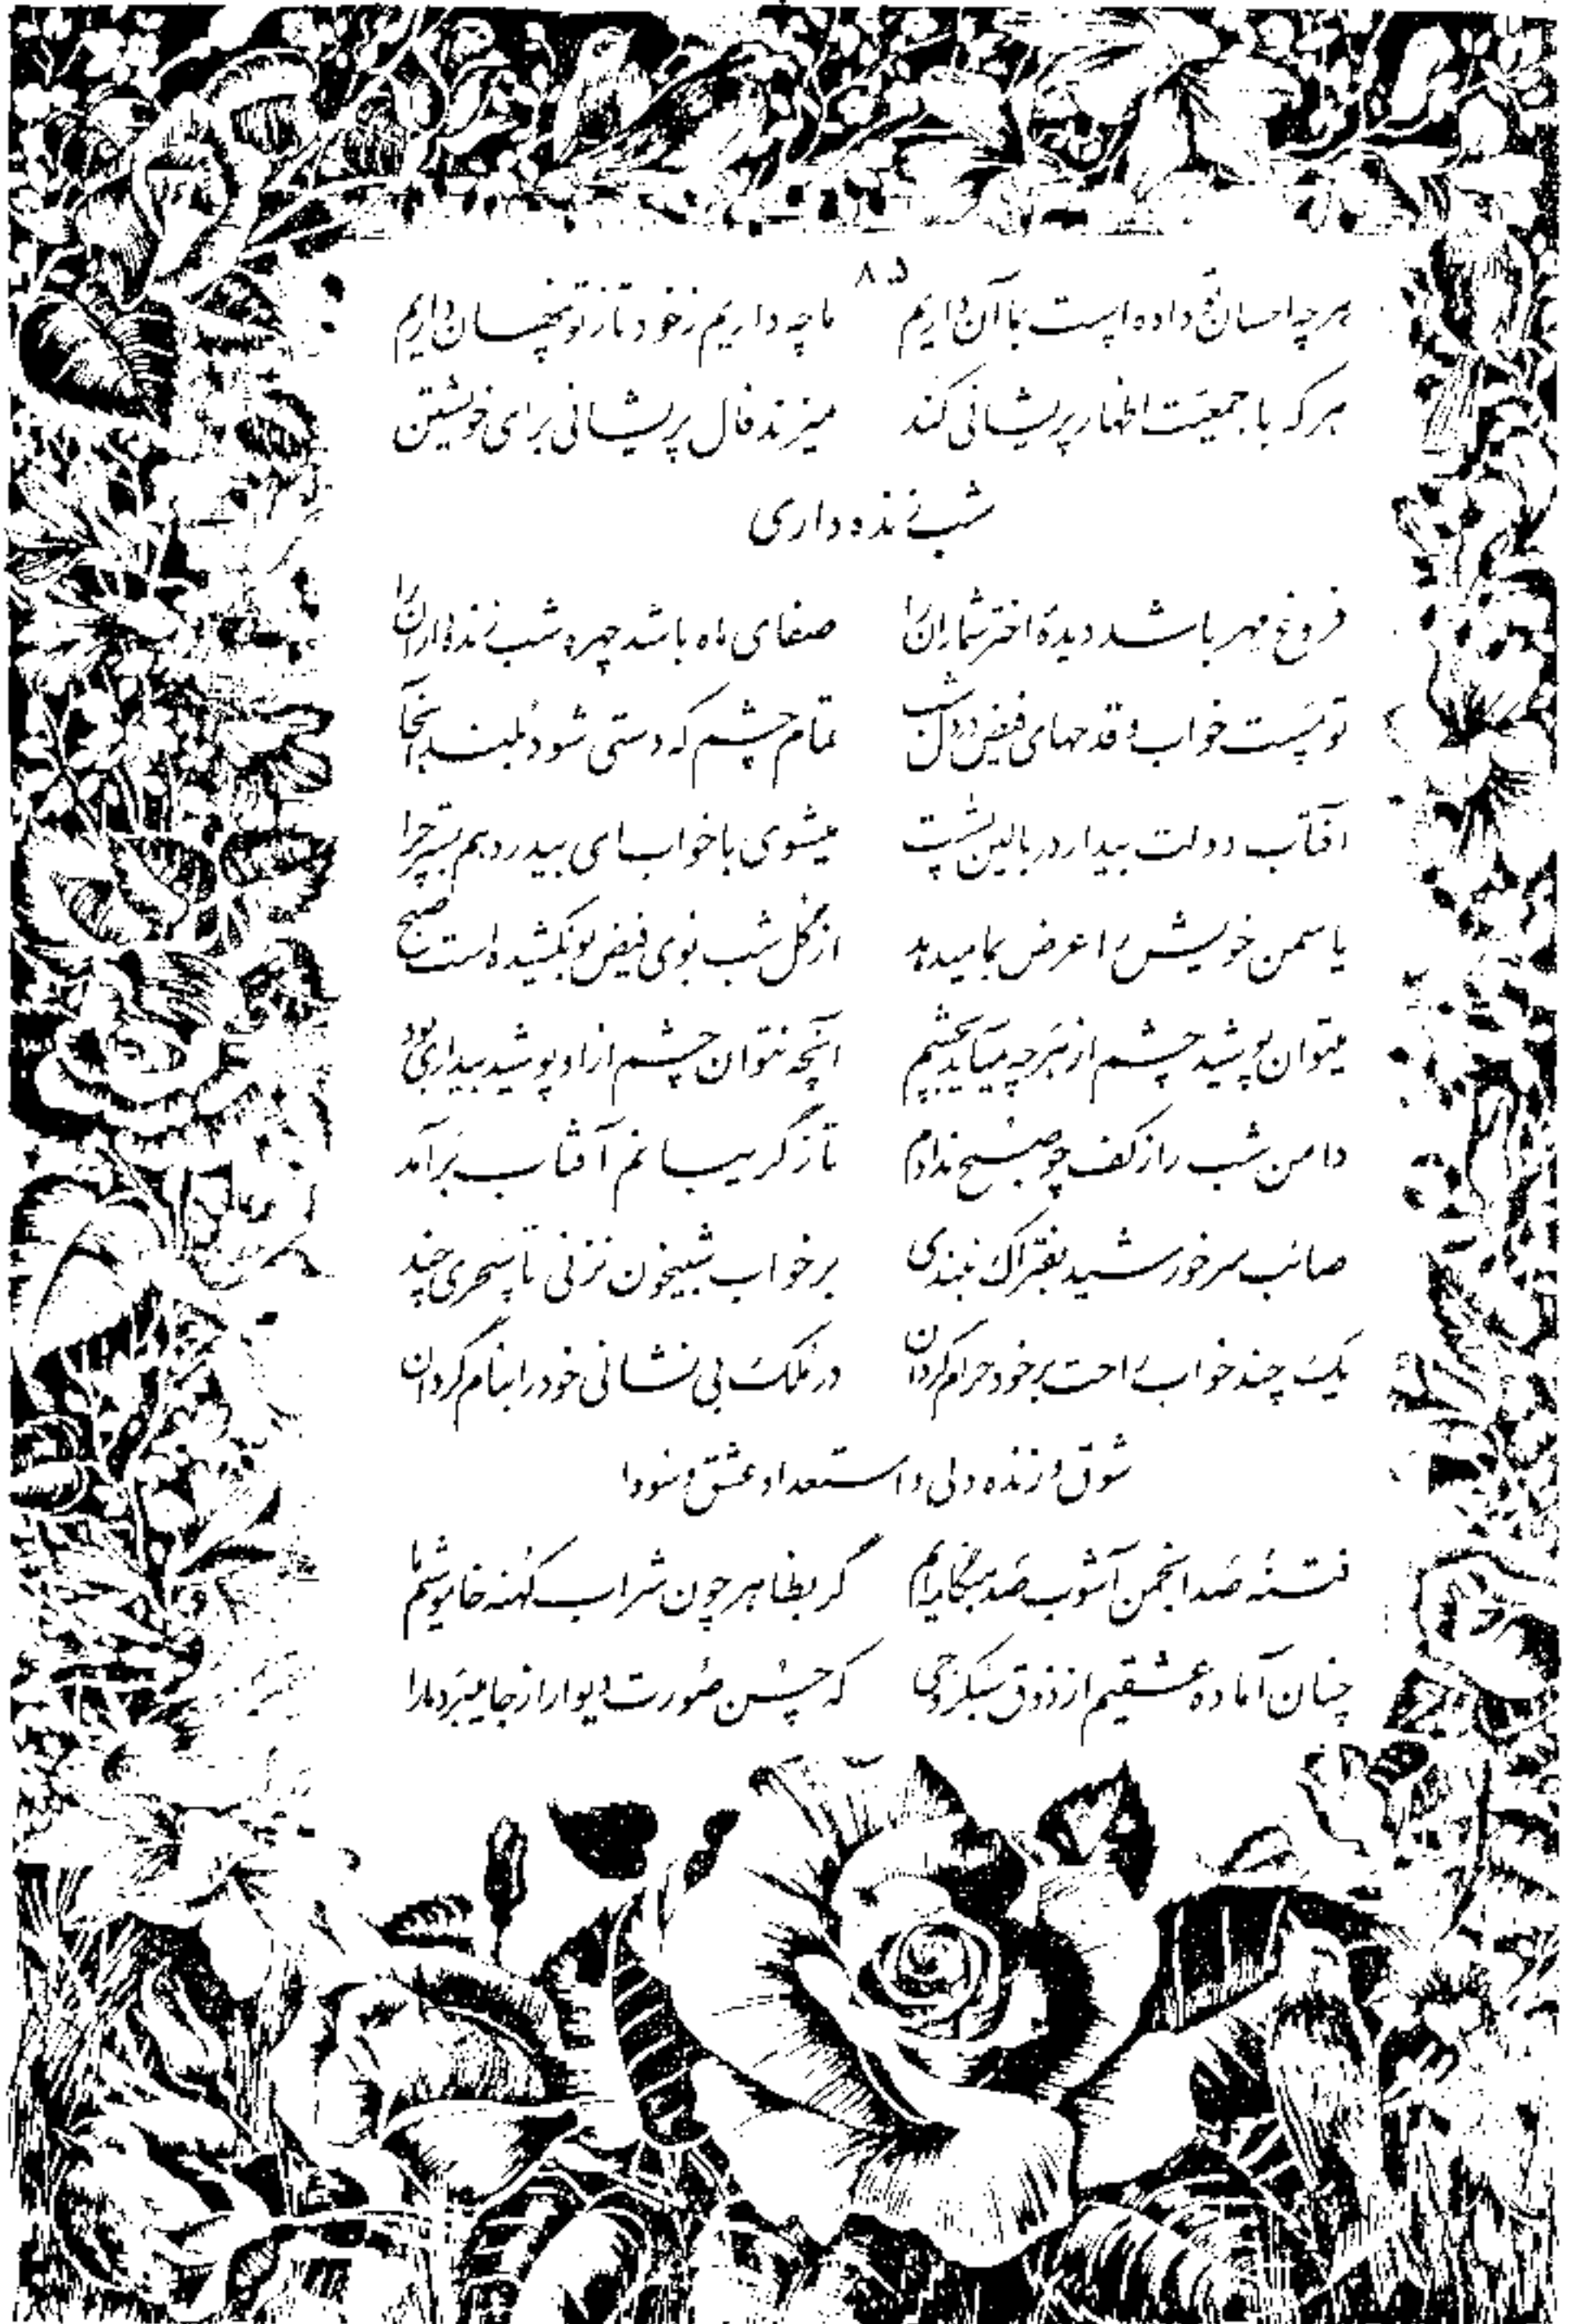 ۸۵
هرچه احسان تو داده است بما آن داریم ما چه داریم ز خود تا ز تو پنهان داریم
هر که با جمعیت اظهار پریشانی کند میزند فال پریشانی برای خویشتن
شب زنده داری
فروغ مهر باشد دیدهٔ اختر شماران را صفای ماه باشد چهره شب زنده داران را
تو مست خواب و قدحهای فیض در دل شب تمام چشم که دستی شود بلند آنجا
آفتاب دولت بیدار در بالین تست میشوی با خواب ای بیدرد هم بستر چرا
یاسمن خویش را عرض بما میدهد از گل شب بوی فیض بو نکشیده است صبح
میتوان پوشید چشم از هرچه میآید بچشم آنچه نتوان چشم از او پوشید بیداری بود
دامن شب را ز کف چو صبح ندادم تا ز گریبانم آفتاب برآمد
صائب سر خورشید بفتراک نبندی بر خواب شبیخون نزنی تا سحری چند
یک چند خواب راحت بر خود حرام گردان در ملک بی نشانی خود را بنام گردان
شوق و زنده دلی و استعداد عشق و سودا
فتنهٔ صد انجمن آشوب صد هنگامه ایم گر بظاهر چون شراب کهنه خاموشیم ما
چنان آماده عشقیم از ذوق سبکروحی که حسن صورت دیوار از جا میبرد ما را